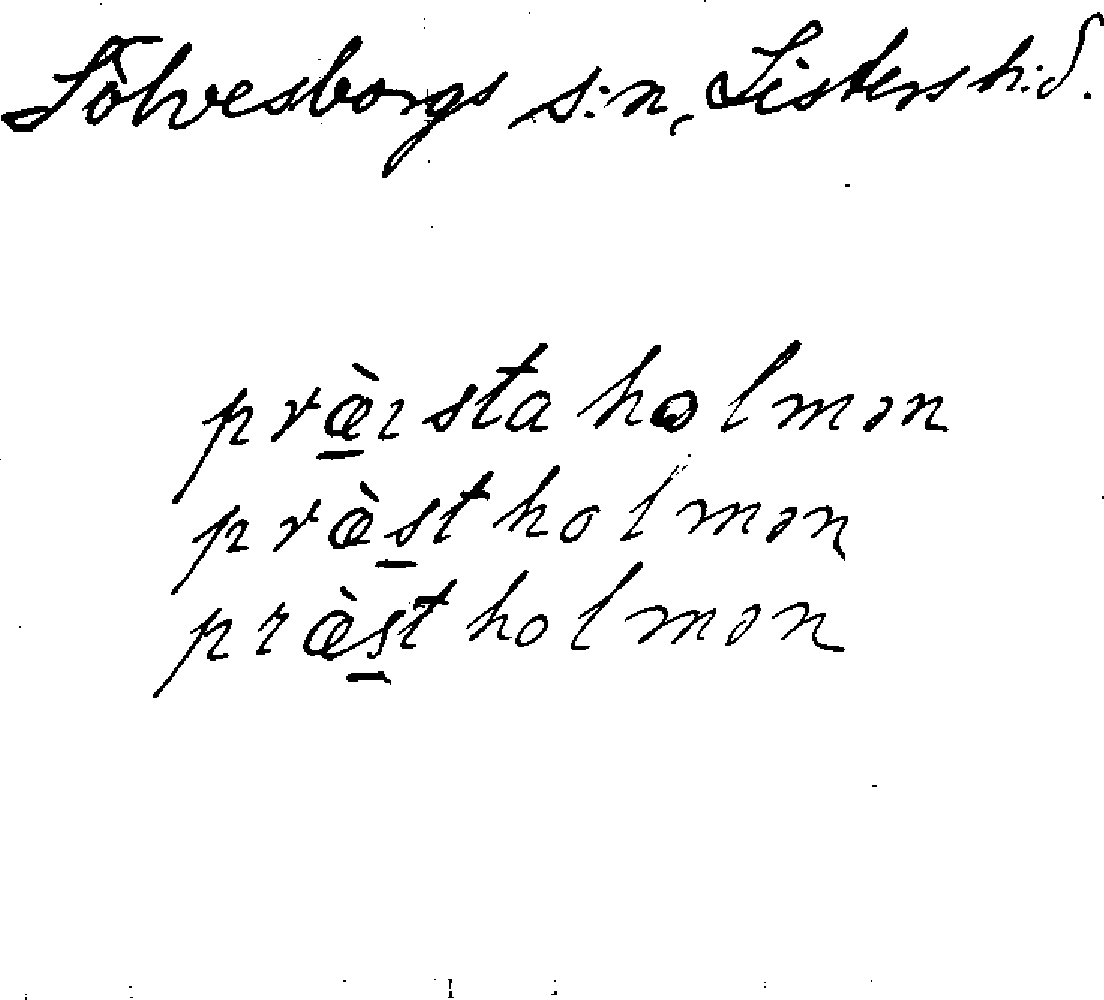 Sölvesborgs s:n, Listers h:d.
præ̱̀ısta holmən
præ̀s̱t holmən
præ̀s̱t holmən